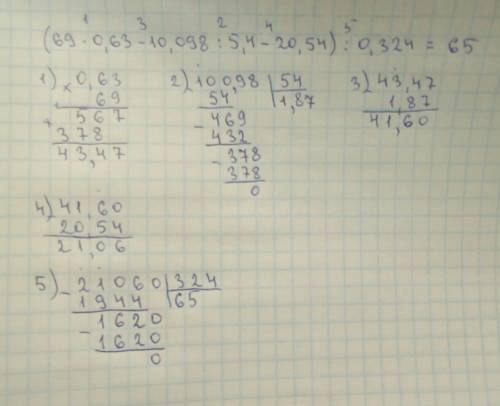 1 3 2 4 5
(69 · 0,63 - 10,098 : 5,4 - 20,54) : 0,324 = 65
1) × 0,63 2) 100,98 | 54 3) 43,47
69 54 | 1,87 1,87
+ 567 - 469 41,60
378 432
43,47 - 378
378
0
4) 41,60
20,54
21,06
5) - 21060 | 324
1944 | 65
- 1620
1620
0